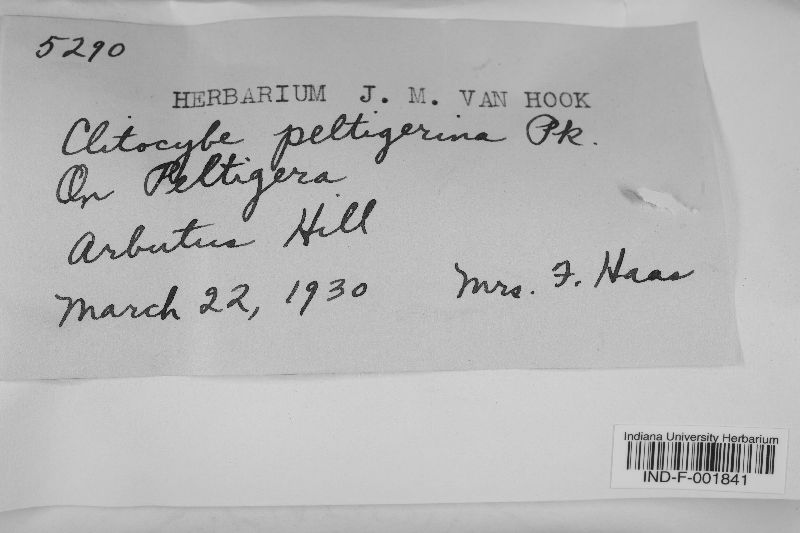 5290
HERBARIUM J. M. VAN HOOK
Clitocybe peltigerina Pk.
On Peltigera
Arbutus Hill
March 22, 1930 Mrs. F. Haas
Indiana University Herbarium
IND-F-001841